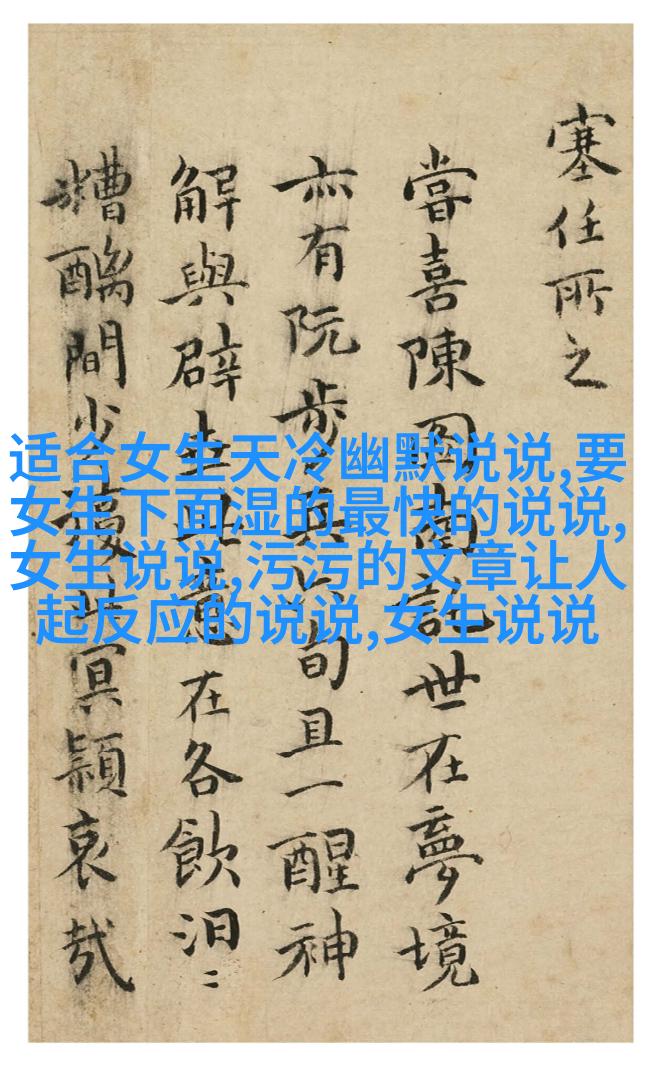 塞任所之
嘗喜陳圖南託世在夢境
亦有阮步兵六旬且一醒神
解與辟世意在各飲汨〻
糟醨間少冥哀哉
适合女生天冷幽默说说,要
女生下面湿的最快的说说,
女生说说,污污的文章让人
起反应的说说,女生说说